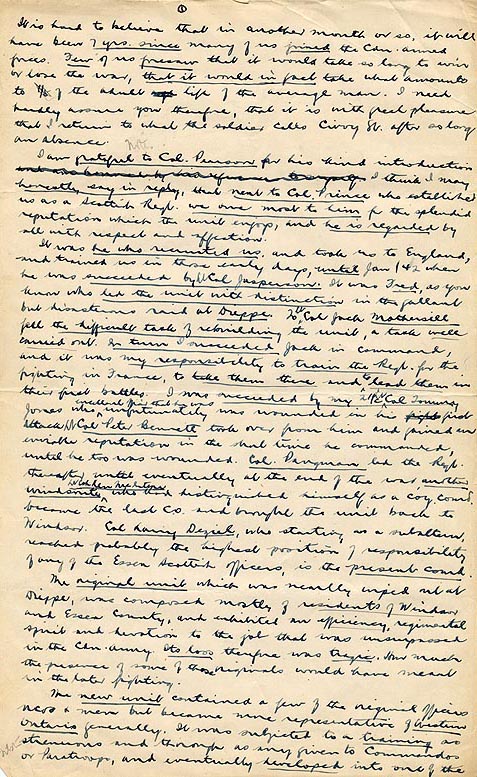 1
It is hard to believe that in another month or so, it will
have been 7 yrs. since many of us joined the Cdn. armed
forces. Few of us foresaw that it would take so long to win
or lose the war, that it would in fact take what amounts
to 1/6 of the adult life of the average man. I need
hardly assure you therefore, that it is with great pleasure
that I return to what the soldier calls Civvy St. after so long
an absence.
I am grateful to Col. Pearson for his kind introduction
I think I may
honestly say in reply, that next to Col. Prince who established
us as a Scottish Regt. we owe most to him for the splendid
reputation which the unit enjoys, and he is regarded by
all with respect and affection.
It was he who recruited us, and took us to England,
and trained us in those early days, until Jan 1/42 when
he was succeeded by Lt Col Jasperson. It was Fred, as you
know who led the unit with distinction in the gallant
but disasterous raid at Dieppe. To Lt Col Jack Mothersill
fell the difficult task of rebuilding the unit, a task well
carried out. In turn I succeeded Jack in command,
and it was my responsibility to train the Regt. for the
fighting in France, to take them there and to lead them in
their first battles. I was succeeded by my 2 i/c Lt Col Tommy
Jones who, unfortunately was wounded in his first
attack. Lt Col Peter Bennett took over from him and gained an
enviable reputation in the short time he commanded,
until he too was wounded. Col. Pangman led the Regt.
thereafter until eventually at the end of the war, another
Windsorite, who had distinguished himself as a coy. comd.
became the last C.O. and brought the unit back to
Windsor. Col Dalziel, who starting as a subaltern,
reached probably the highest position of responsibility
of any of the Essex Scottish officers, is the present comd.
The original unit which was nearly wiped out at
Dieppe, was composed mostly of residents of Windsor
and Essex County, and exhibited an efficiency, regimental
spirit and devotion to the job that was unsurpassed
in the Cdn. Army. Its loss therefore was tragic. How much
the presence of some of those originals would have meant
in the later fighting.
The new unit contained a few of the original officers
ncos & men but became more representative of Western
Ontario generally. It was subjected to a training as
strenuous and thorough as any given to Commandos
or Paratroops, and eventually developed into one of the